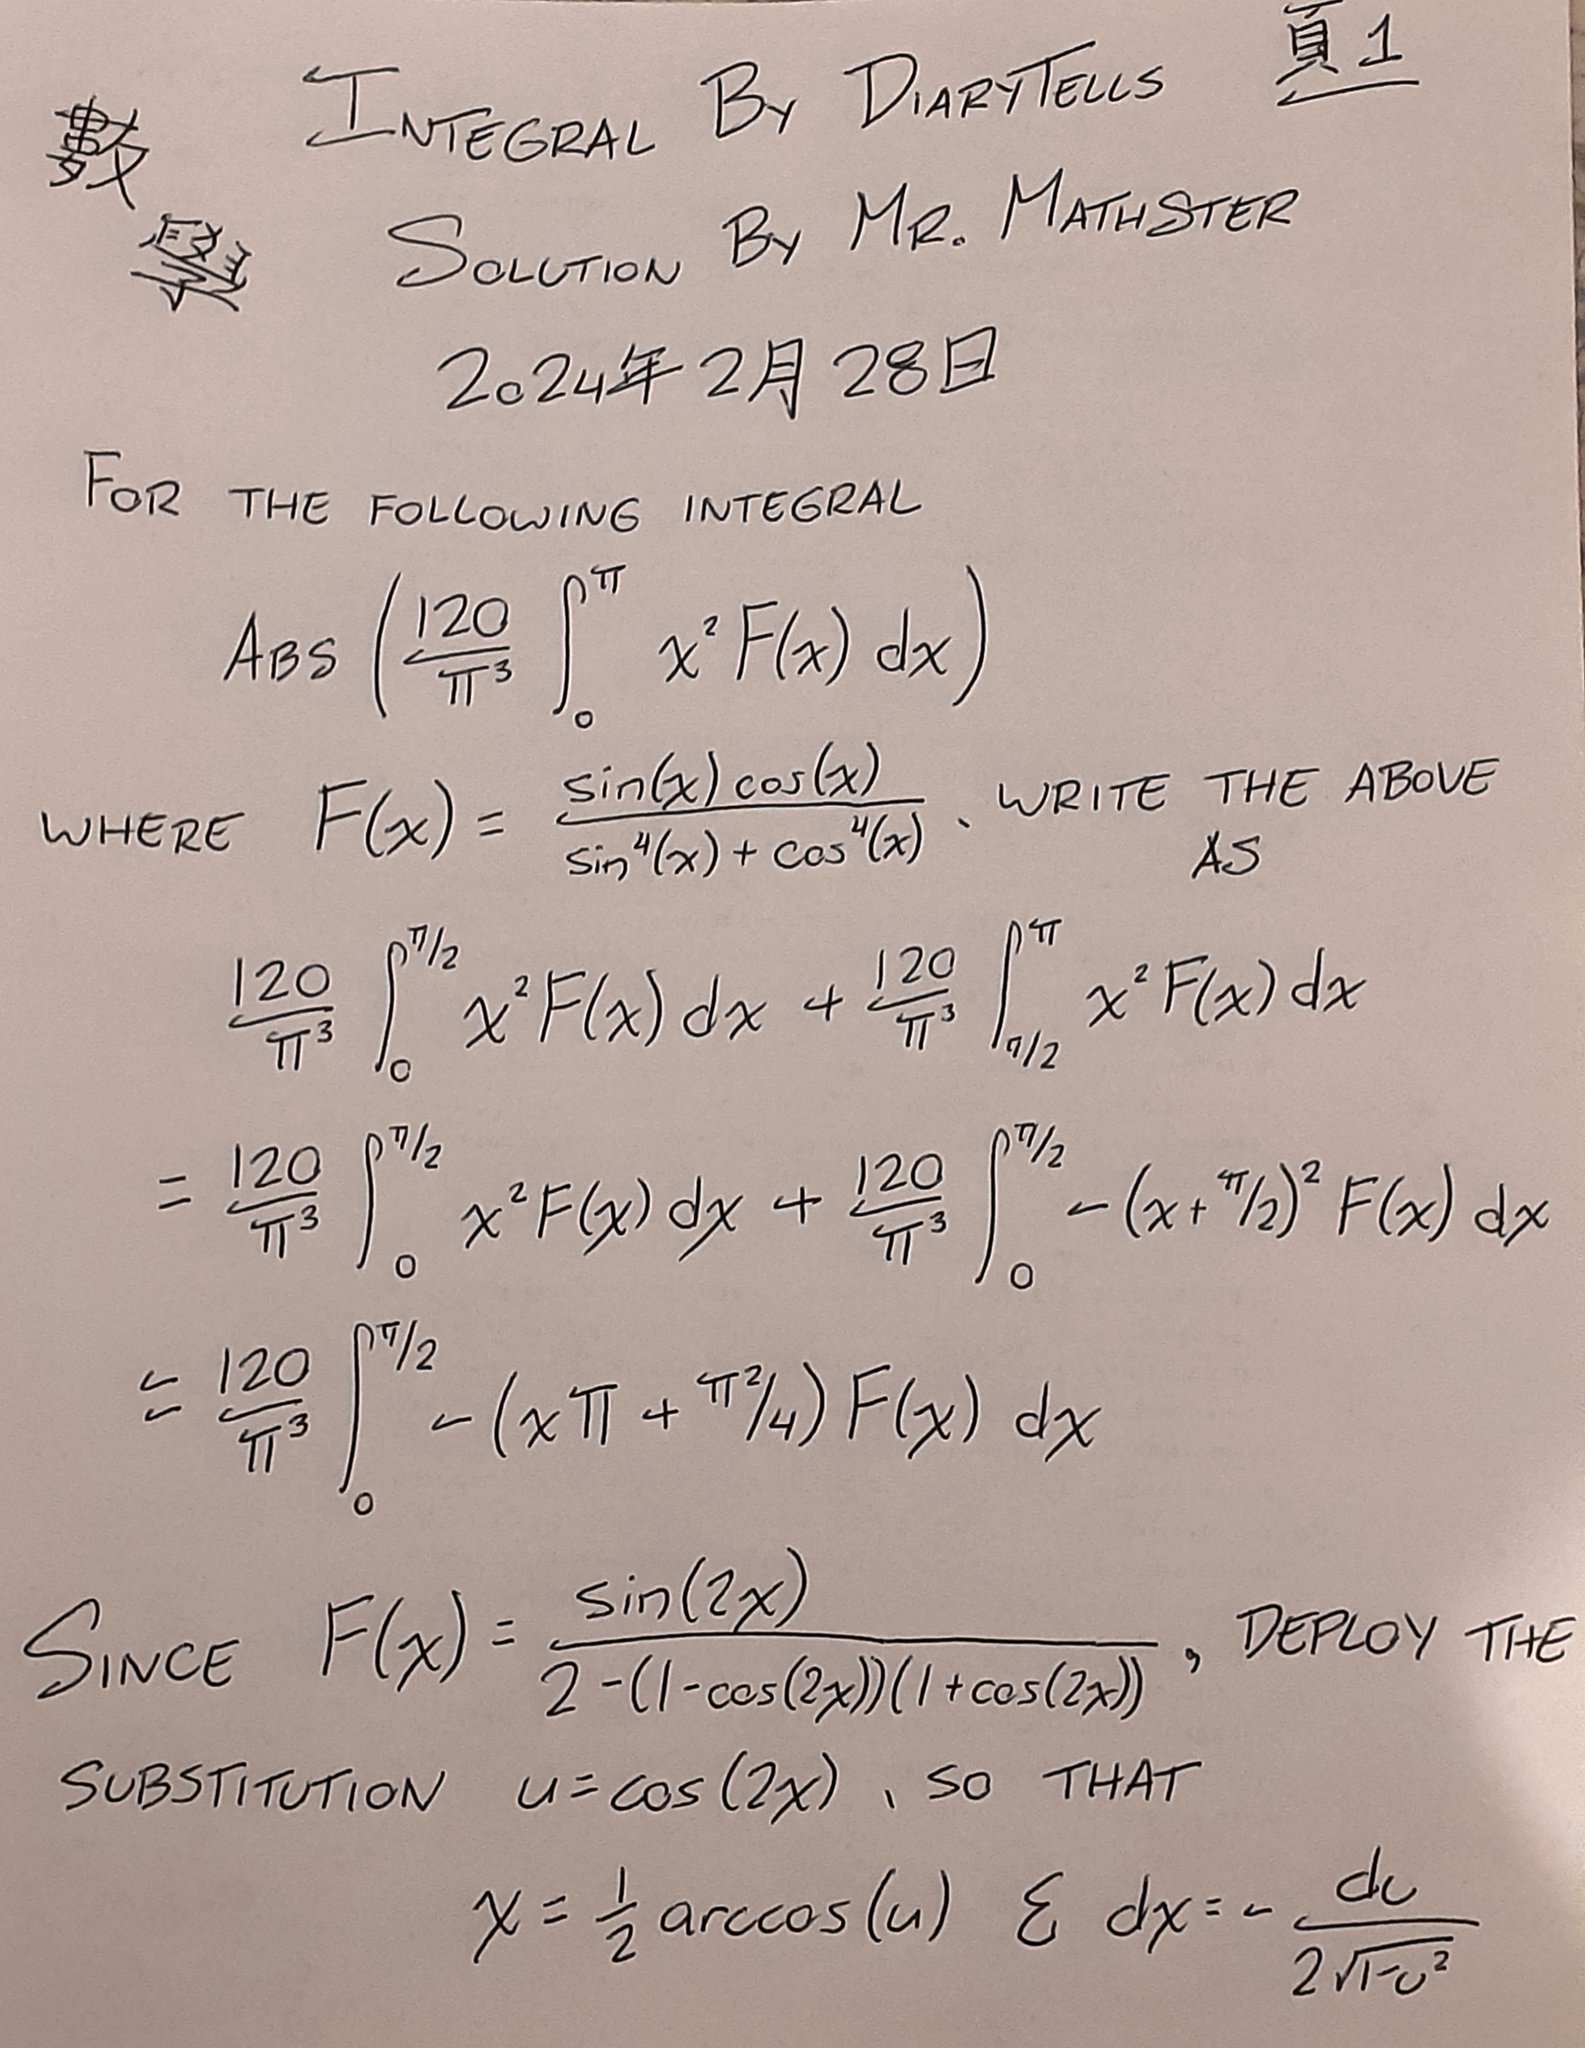 INTEGRAL BY DIARYTELLS 頁1
數學
SOLUTION BY MR. MATHSTER
2024年2月28日
FOR THE FOLLOWING INTEGRAL
ABS (120/π³ ∫₀^π x² F(x) dx)
WHERE F(x) = sin(x) cos(x) / sin⁴(x) + cos⁴(x) 、 WRITE THE ABOVE
AS
120/π³ ∫₀^π/2 x² F(x) dx + 120/π³ ∫_π/2^π x² F(x) dx
= 120/π³ ∫₀^π/2 x² F(x) dx + 120/π³ ∫₀^π/2 -(x+π/2)² F(x) dx
= 120/π³ ∫₀^π/2 -(xπ + π²/4) F(x) dx
SINCE F(x) = sin(2x) / 2-(1-cos(2x))(1+cos(2x)) , DEPLOY THE
SUBSTITUTION u=cos(2x) 、 SO THAT
x = 1/2 arccos(u) & dx = - du / 2√1-u²